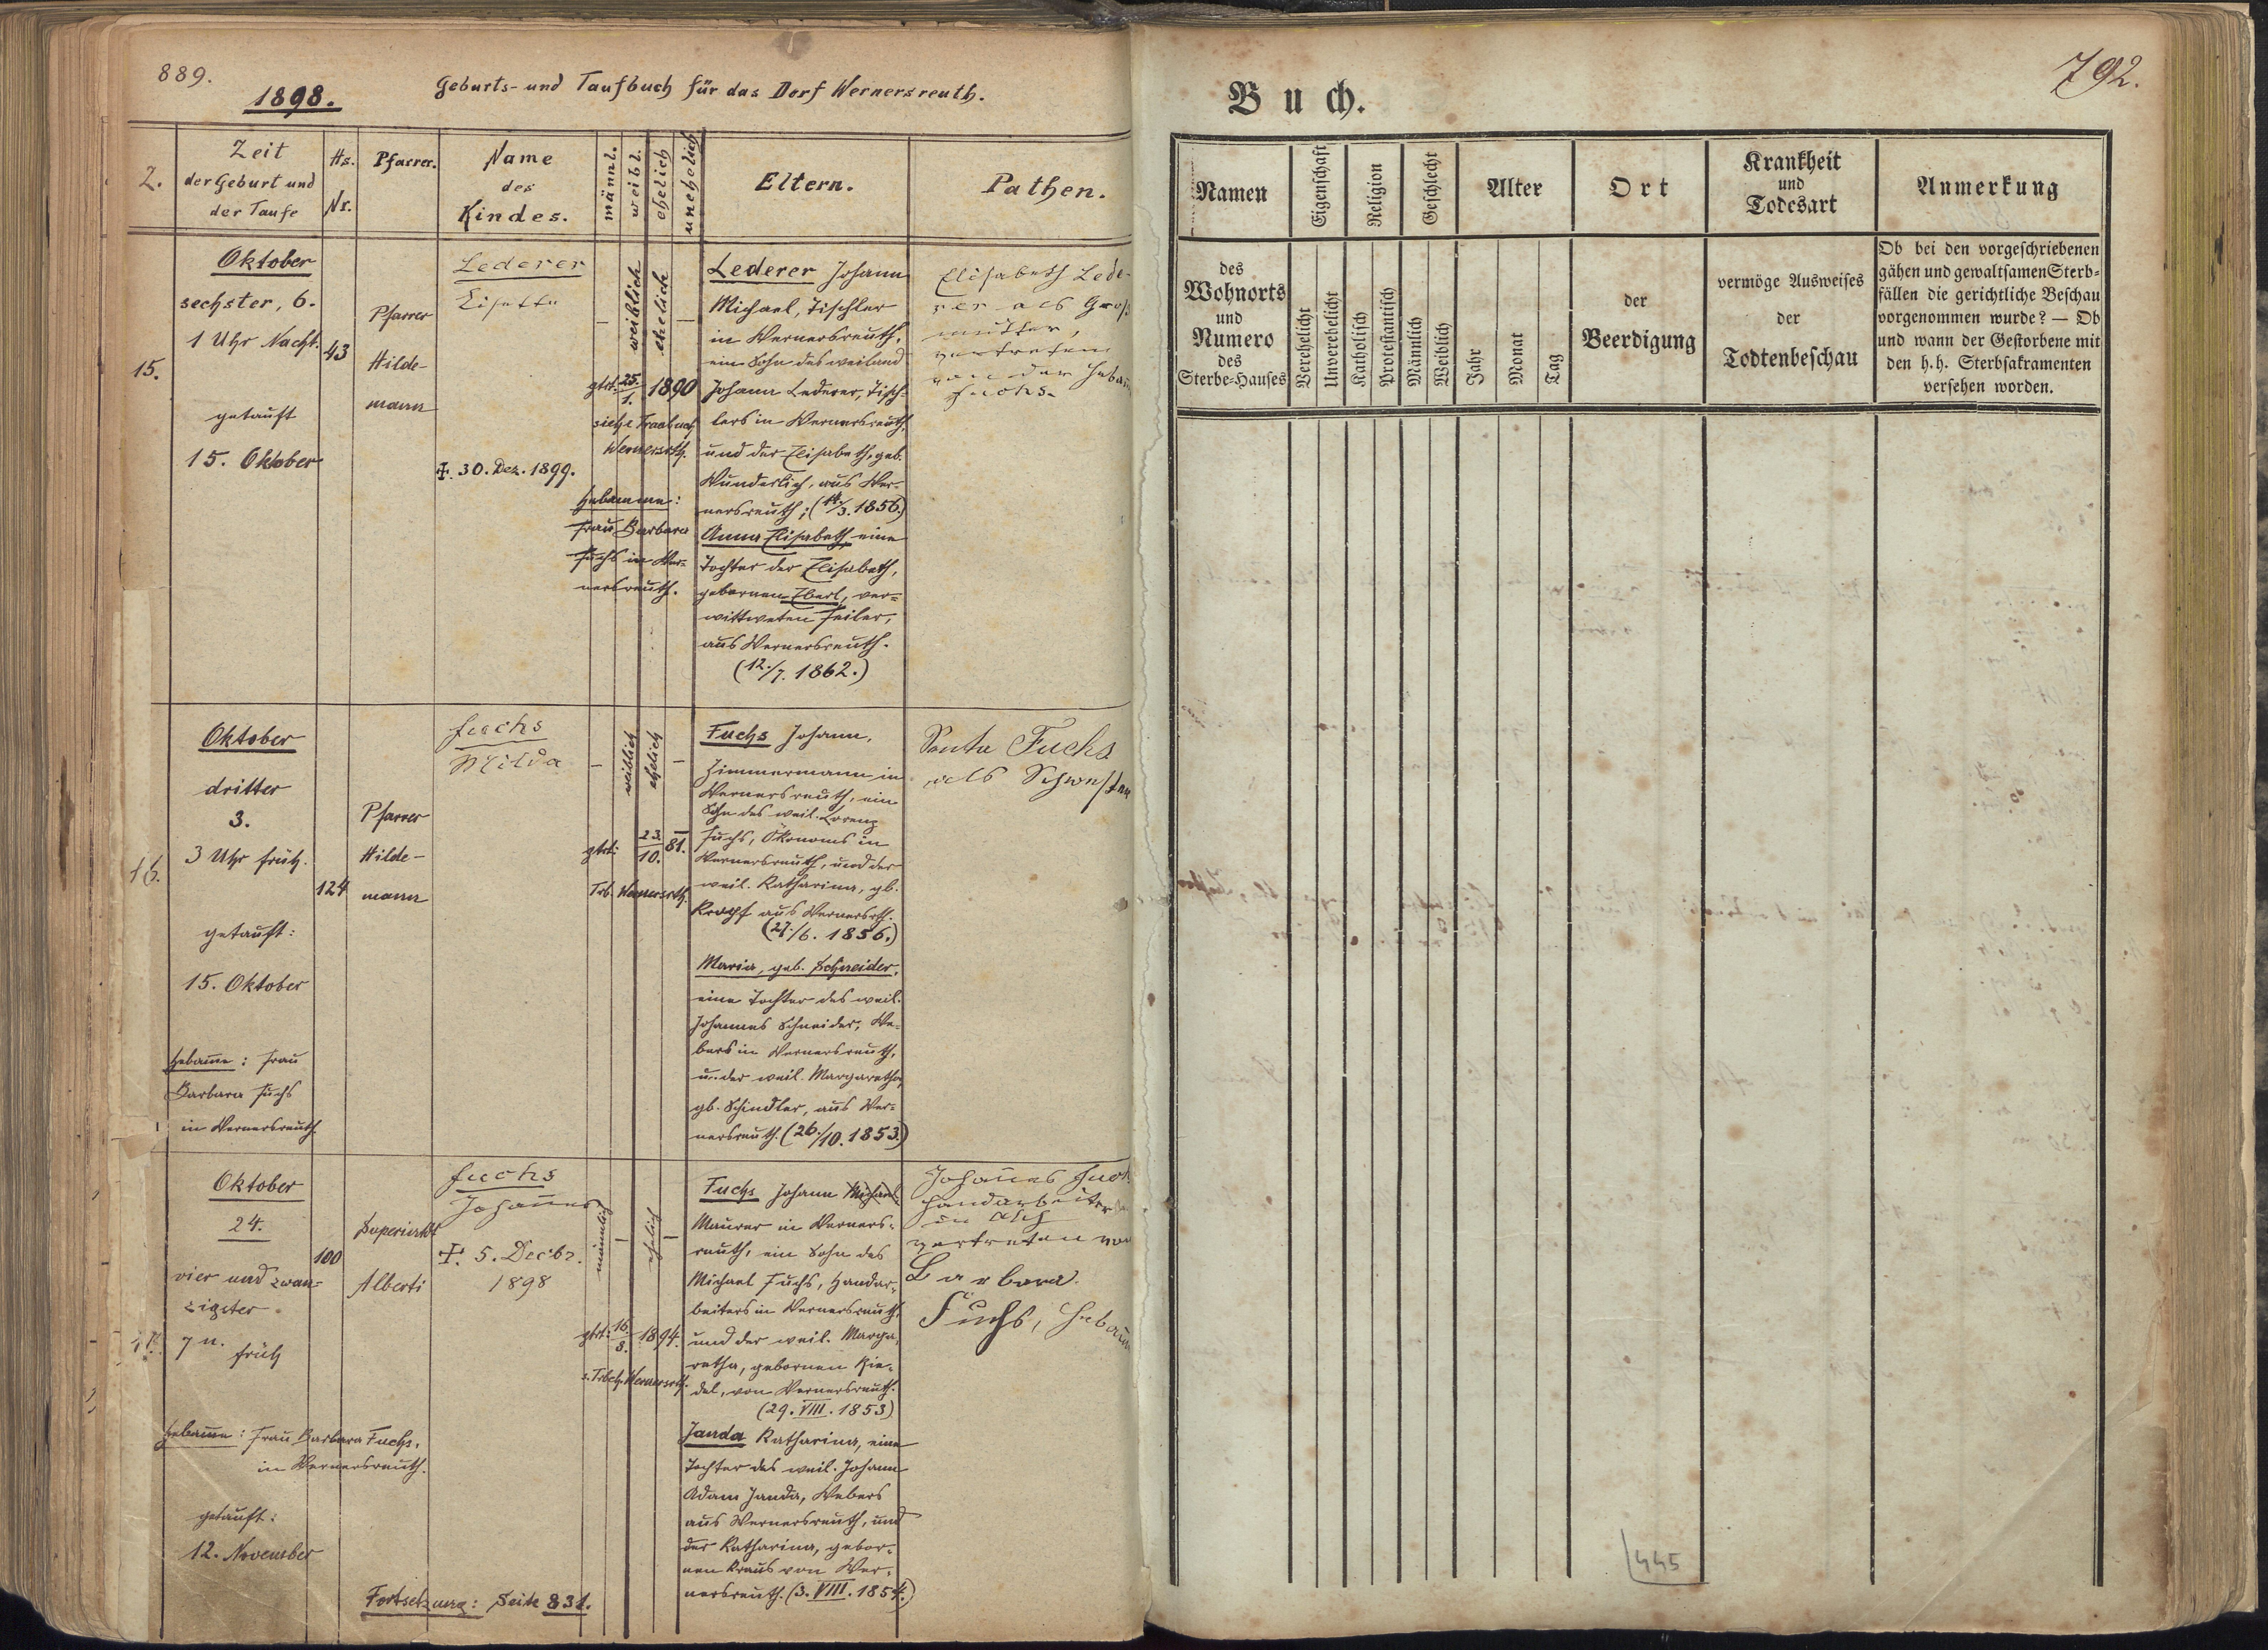 889.
1898.
Geburts- und Taufbuch für das Dorf Wernersreuth.
Z.
Zeit
der Geburt und
der Taufe
Hs.
Nr.
Pfarrer.
Name
des
Kindes.
männl.
weibl.
ehelich
unehelich
Eltern.
Pathen.
15.
Oktober
sechster, 6.
1 Uhr Nacht.
getauft
15. Oktober
43
Pfarrer
Hilde-
mann
Lederer
Lisette
✝. 30. Dez. 1899.
–
weiblich
ehelich
–
gtrt. 25./1. 1890
siehe Traubuch
Wernersrth.
Hebamme:
Frau Barbara
Fuchs in Wer-
nersreuth.
Lederer Johann
Michael, Tischler
in Wernersreuth,
ein Sohn des weiland
Johann Lederer, Tisch-
lers in Wernersreuth,
und der Elisabeth, geb.
Wunderlich, aus Wer-
nersreuth; (14./3. 1856.)
Anna Elisabeth eine
Tochter der Elisabeth,
gebornen Eberl, ver-
wittweten Feiler,
aus Wernersreuth.
(12./7. 1862.)
Elisabeth Lede-
rer als Groß-
mutter,
vertreten
von der
Fuchs.
16.
Oktober
dritter
3.
3 Uhr früh.
getauft:
15. Oktober
Hebamme: Frau
Barbara Fuchs
in Wernersreuth.
124
Pfarrer
Hilde-
mann
Fuchs
Milda
–
weiblich
ehelich
–
gtrt: 23./10. 81.
Trb. Wernersrth.
Fuchs Johann,
Zimmermann in
Wernersreuth, ein
Sohn des weil. Lorenz
Fuchs, Ökonoms in
Wernersreuth, und der
weil. Katharina, gb.
Kropf aus Wernersrth.
(27./6. 1856.)
Maria, geb. Schneider,
eine Tochter des weil.
Johannes Schneider, We-
bers in Wernersreuth,
u. der weil. Margaretha,
gb. Schindler, aus Wer-
nersreuth. (26./10. 1853.)
Fuchs
als Schwester
17.
Oktober
24.
vier und zwan-
zigster
7 u. früh
Hebamme: Frau Barbara Fuchs,
in Wernersreuth.
getauft:
12. November
100
Superintdt
Alberti
Fuchs
Johannes
✝. 5. Decbr.
1898
männlich
–
ehelich
–
gtrt: 16./8. 1894.
s. Trbch. Wernersrth.
Fuchs Johann Michael,
Maurer in Werners-
reuth, ein Sohn des
Michael Fuchs, Handar-
beiters in Wernersreuth,
und der weil. Marga-
retha, gebornen Rie-
del, von Wernersreuth.
(29. VIII. 1853)
Janda Katharina, eine
Tochter des weil. Johann
Adam Janda, Webers
aus Wernersreuth, und
der Katharina, gebor-
nen Kraus von Wer-
nersreuth. (3. VIII. 1854.)
Johannes
Handarbeiter
in Asch
vertreten von
Barbara
Fuchs,
Fortsetzung: Seite 831.
792.
Buch.
Namen
Eigenschaft
Religion
Geschlecht
Alter
Ort
Krankheit
und
Todesart
Anmerkung
des
Wohnorts
und
Numero
des
Sterbe-Hauses
Verehelicht
Unverehelicht
Katholisch
Protestantisch
Männlich
Weiblich
Jahr
Monat
Tag
der
Beerdigung
vermöge Ausweises
der
Todtenbeschau
Ob bei den vorgeschriebenen
gähen und gewaltsamen Sterb-
fällen die gerichtliche Beschau
vorgenommen wurde? — Ob
und wann der Gestorbene mit
den h.h. Sterbsakramenten
versehen worden.
445